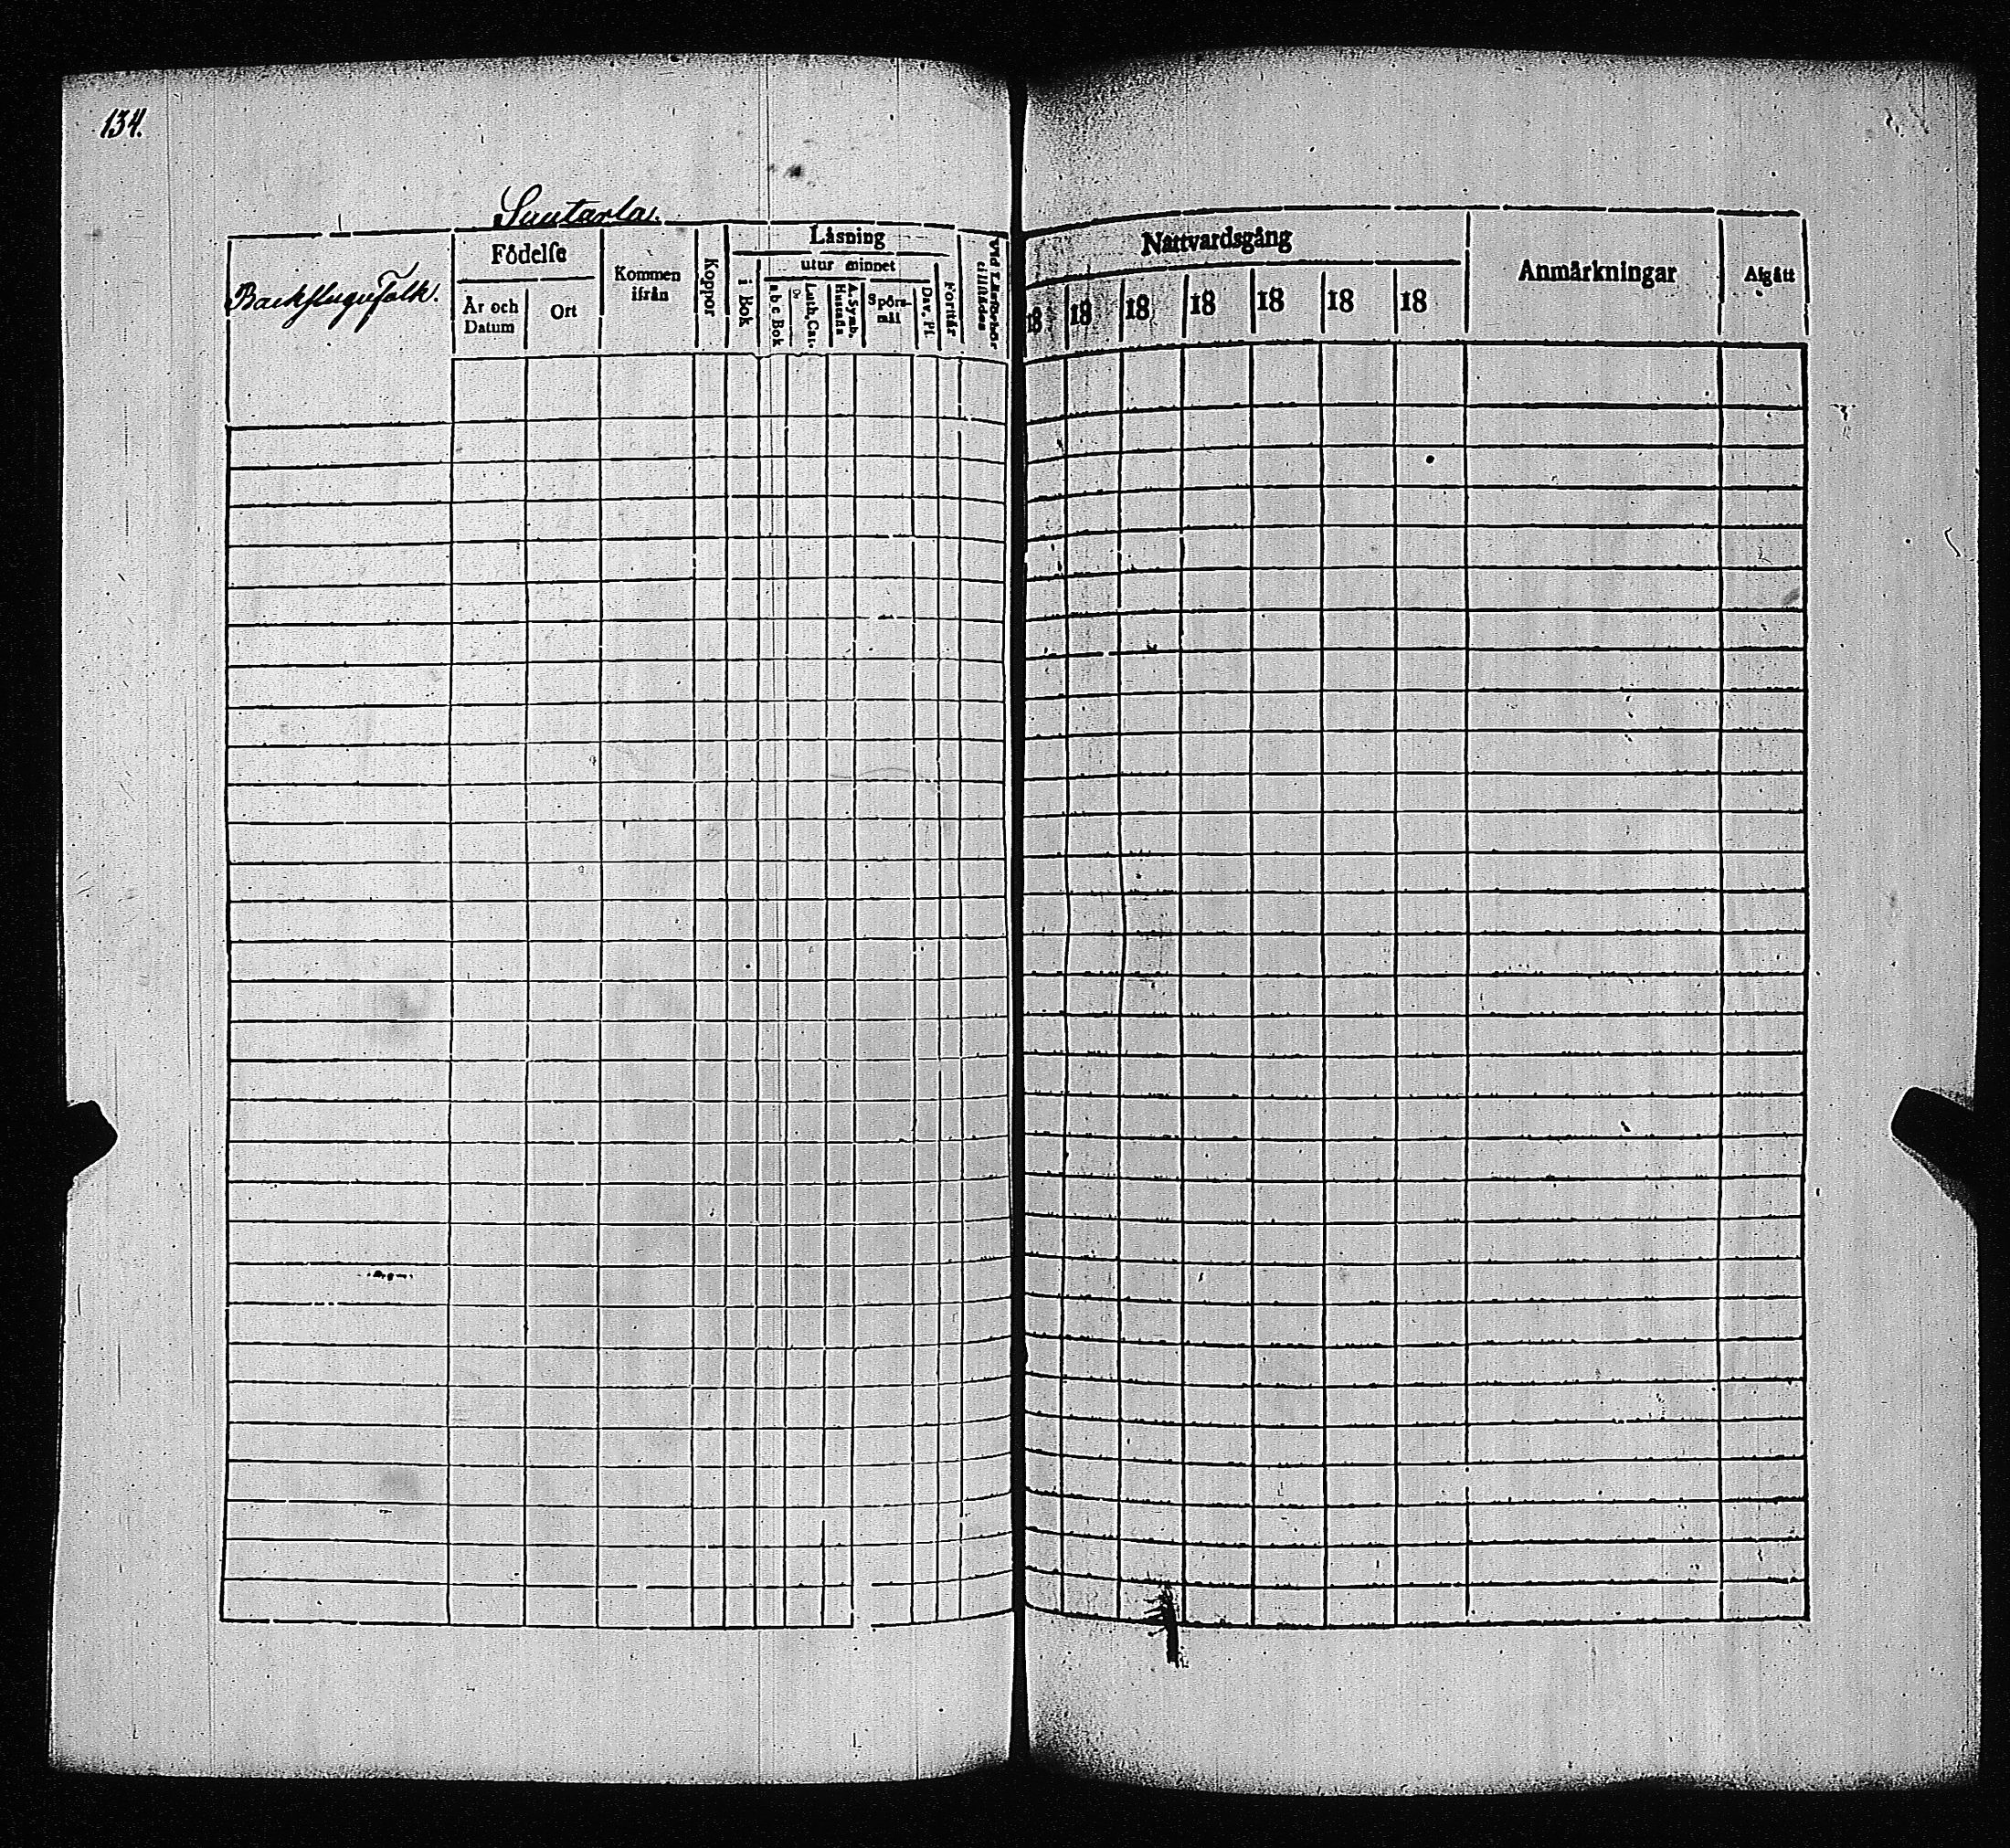 134.
Suutarla.
Backstugufolk.
Födelse
År och
Datum
Ort
Kommen
ifrån
Koppor
Läsning
i Bok
utur minnet
a b c Bok
Luth. Cat.
A. Symb.
Hustafla
Spörs-
mål
Dav. Ps.
Forstår
Vid Läsförhör
tillstådes
Nattvardsgång
18
18
18
18
18
18
18
Anmärkningar
Afgått